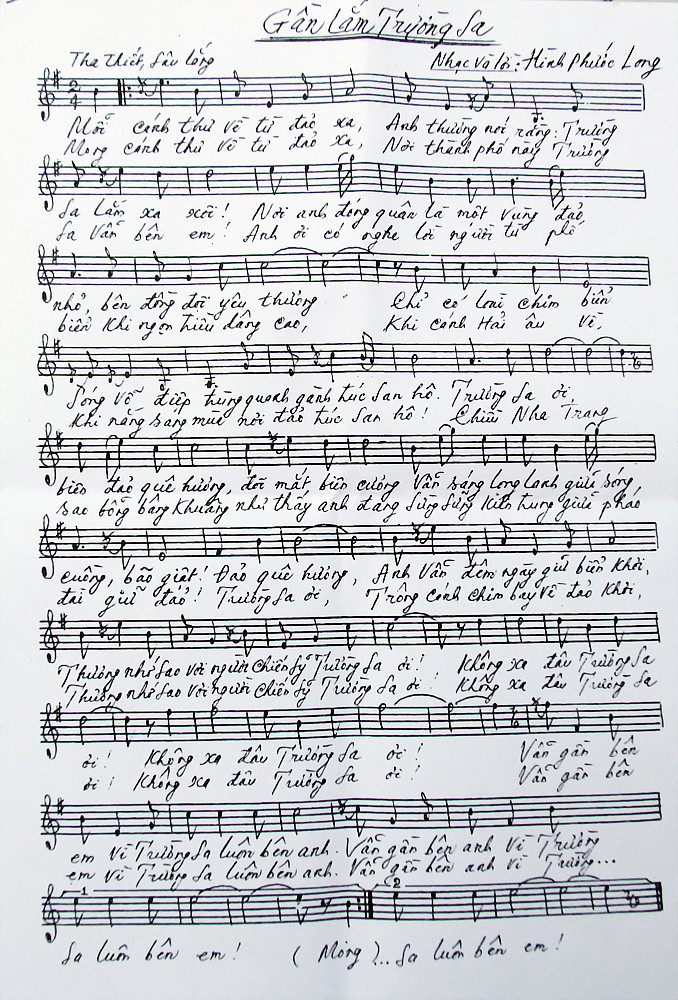 Gần Lắm Trường Sa
Tha thiết, sâu lắng
Nhạc và lời: Hình Phước Long
2
4
Mỗi cánh thư về từ đảo xa, Anh thường nói rằng: Trường
Mong cánh thư về từ đảo xa, Nơi thành phố này Trường
Sa lắm xa xôi! Nơi anh đóng quân là một vùng đảo
Sa vẫn bên em! Anh ơi có nghe lời người từ phố
nhỏ, bên đồng đội yêu thương Chỉ có loài chim biển
biển Khi ngọn triều dâng cao, Khi cánh Hải âu về,
Sóng vỗ điệp trùng quanh gành túc San hô. Trường Sa ơi,
Khi nắng sang mùa nơi đảo túc San hô! Chiều Nha Trang
biển đảo quê hương, đôi mắt biên cương Vẫn sáng long lanh giữa sóng
sao bỗng bâng khuâng như thấy anh đang sừng sững kiên trung giữa pháo
cuồng, bão giật! Đảo quê hương, Anh Vẫn đêm ngày giữ biển Khơi,
đài giữ đảo! Trường Sa ơi, Trông cánh chim bay về đảo Khơi,
Thương nhớ Sao với người Chiến Sỹ Trường Sa ơi! Không xa đâu Trường Sa
Thương nhớ Sao với người Chiến Sỹ Trường Sa ơi! Không xa đâu Trường Sa
ơi! Không xa đâu Trường Sa ơi! Vẫn gần bên
ơi! Không xa đâu Trường Sa ơi! Vẫn gần bên
em vì Trường Sa luôn bên anh. Vẫn gần bên anh vì Trường
em vì Trường Sa luôn bên anh. Vẫn gần bên anh vì Trường...
1 2
Sa luôn bên em! (Mong)... Sa luôn bên em!